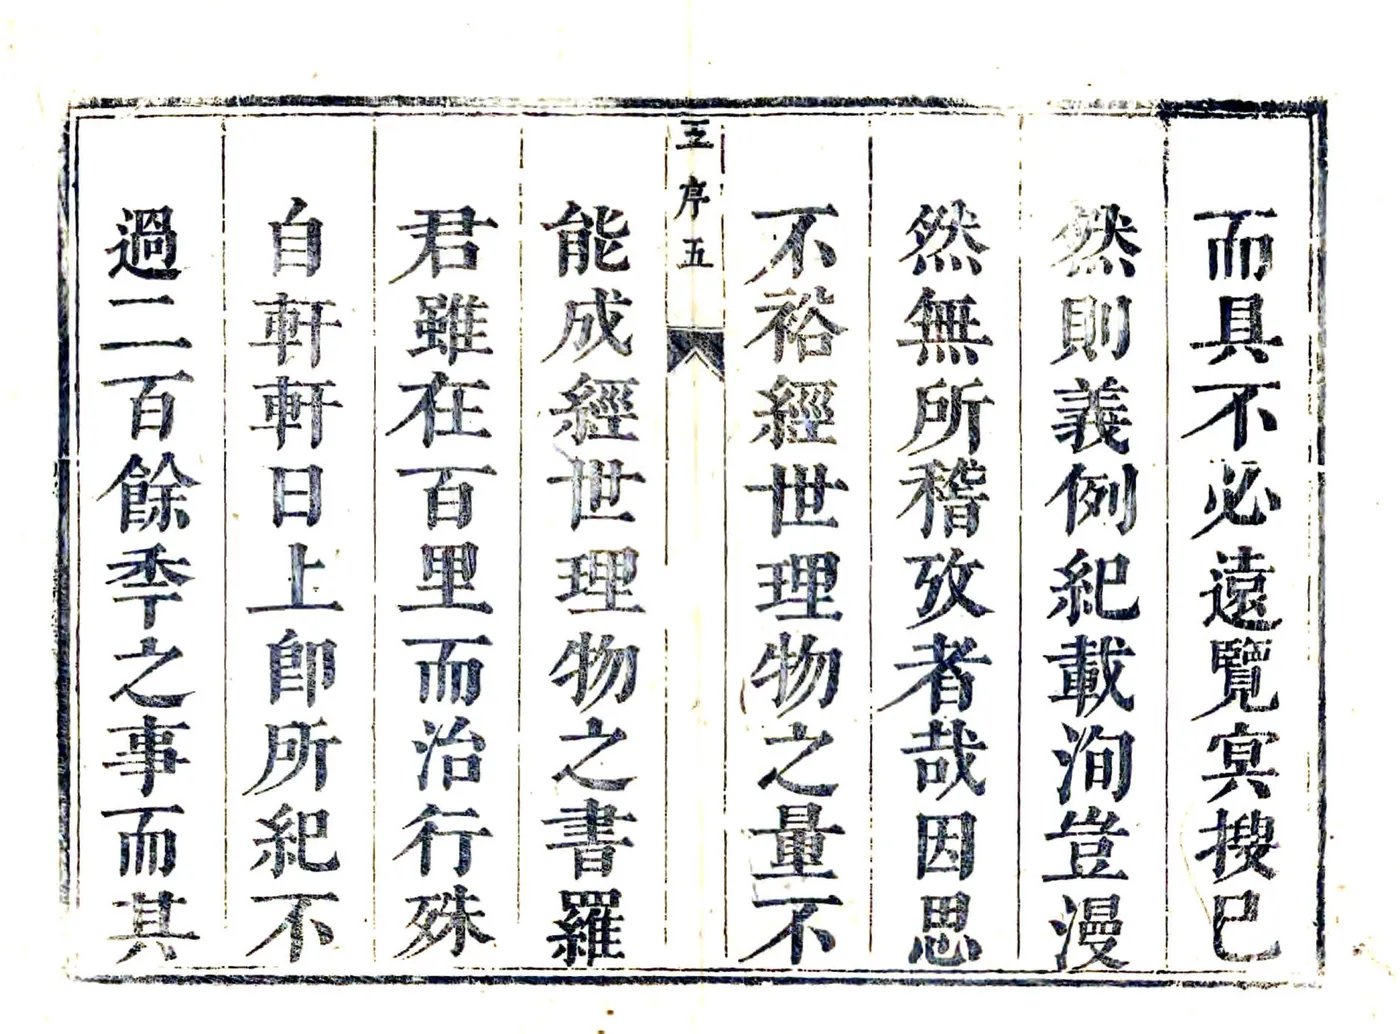 而具不必遠覽冥搜已
然則義例紀載洵豈漫
然無所稽攷者哉因思
不裕經世理物之量不
王序五
能成經世理物之書羅
君雖在百里而治行殊
自軒軒日上卽所紀不
過二百餘秊之事而其